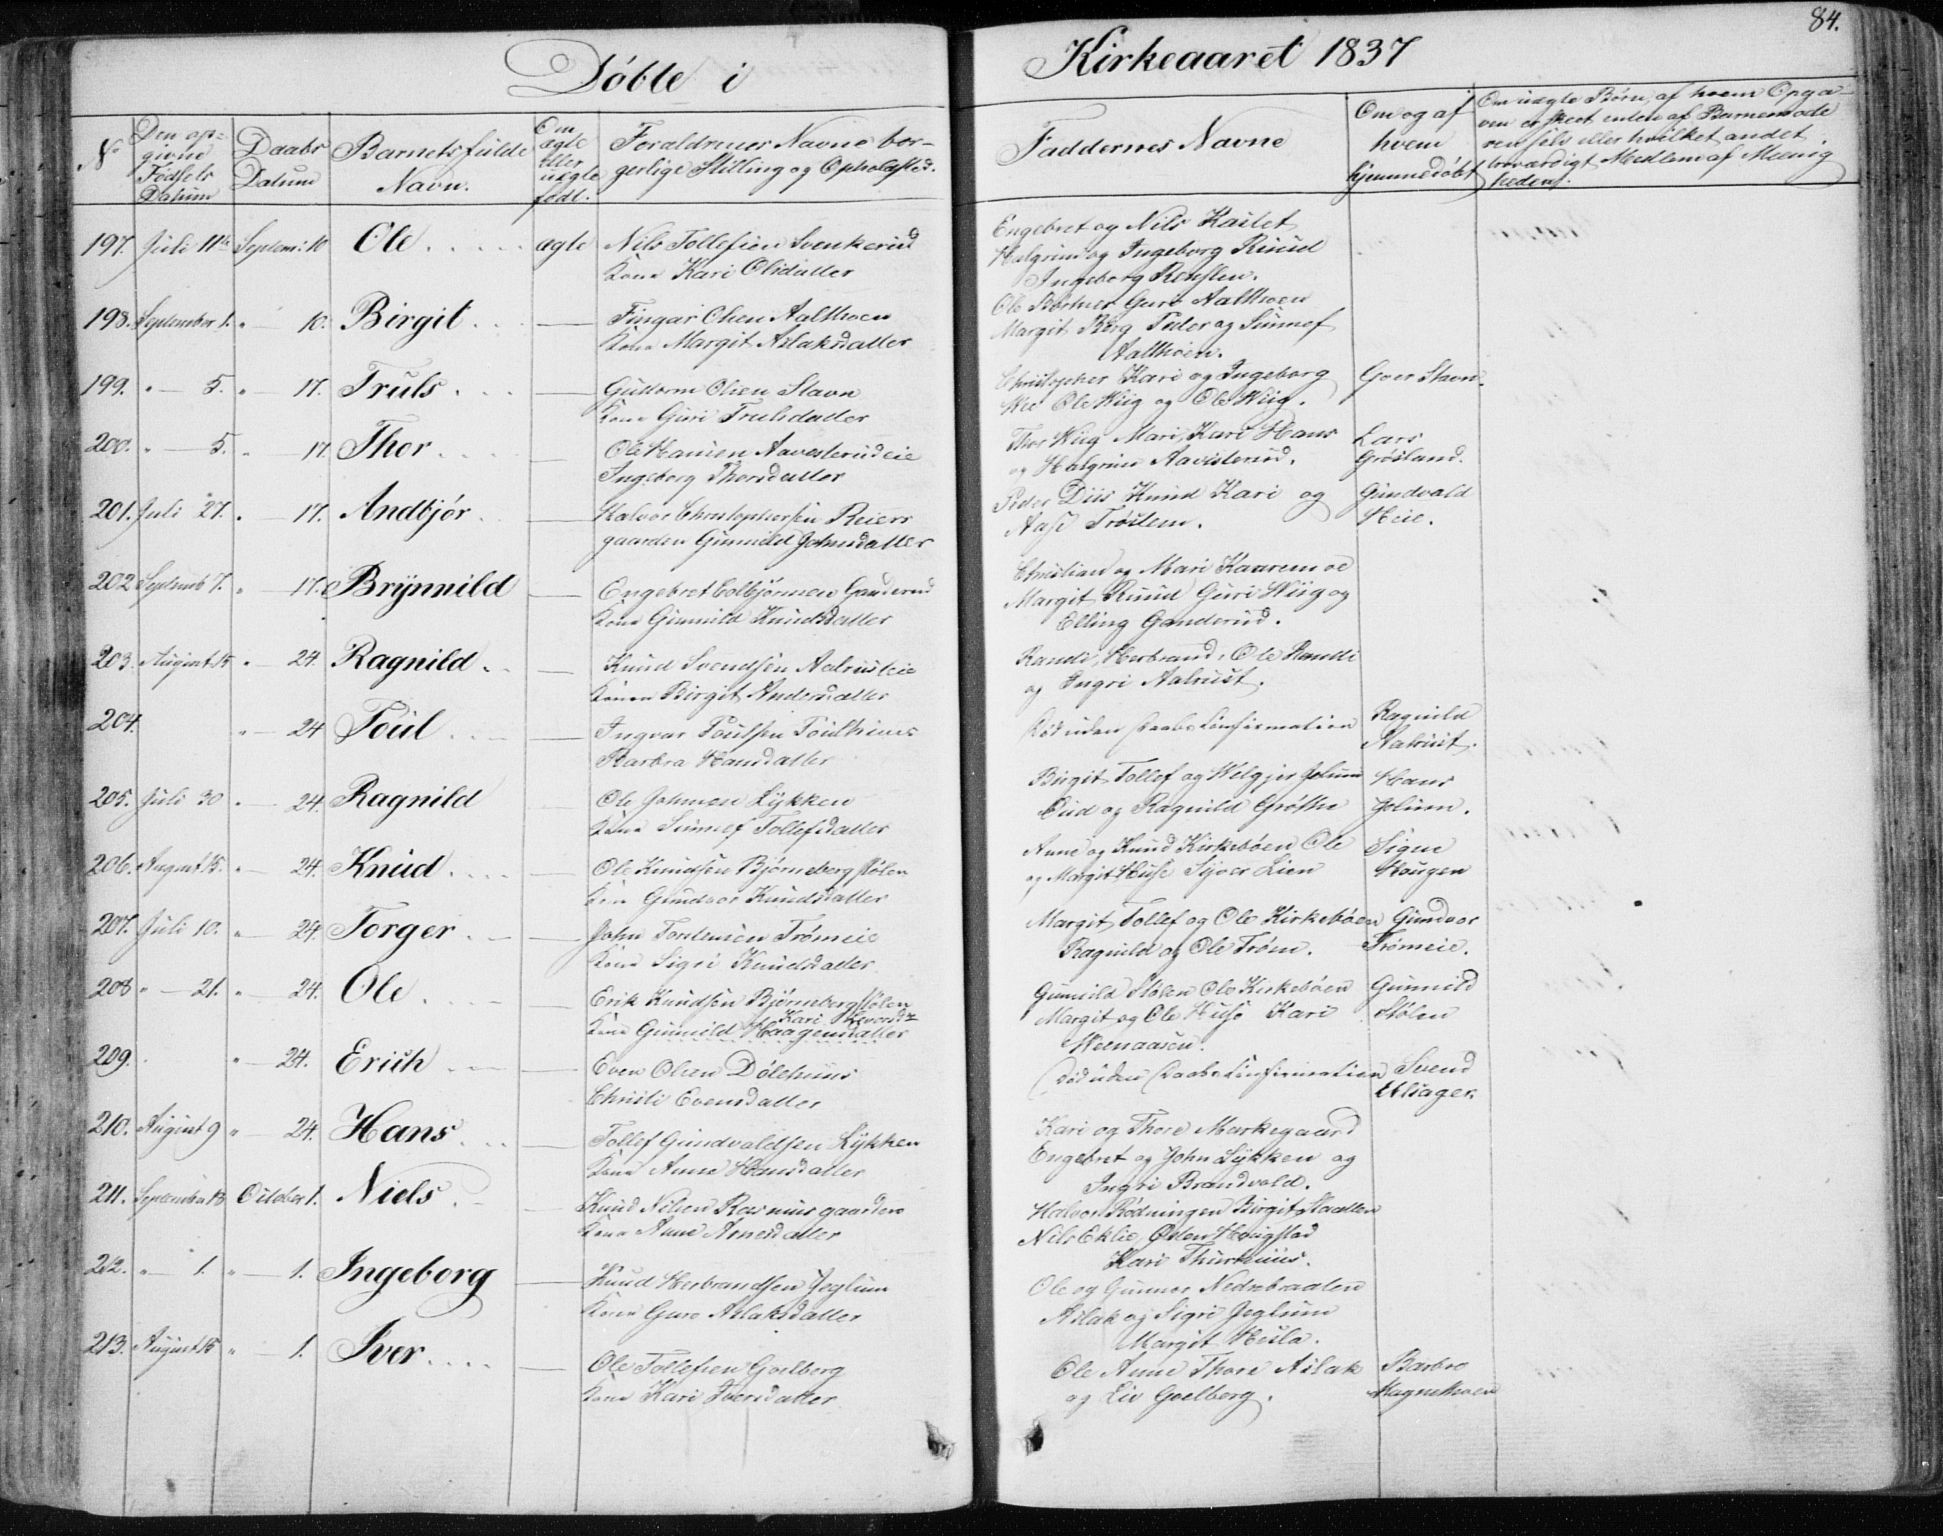 84.
Döbte i Kirkeaaret 1837
No
Den op-
givne
Födsels
Datum
Daabs
Datum
Barnets fulde
Navn.
Om
ægte
eller
uægte
født.
Forældrenes Navne bor-
gerlige Stilling og Opholdsted.
Faddernes Navne
Om og af
hvem
hjemmedøbt
Om uægte Børn, af hvem Opga-
ven er skeet enten af Barnemode
ren selv eller hvilket andet
troværdigt Medlem af Meenig
heden.
197. Juli 11te Septem: 10 Ole ægte Nils Tollefsen Svenkerud
Kone Kari Olsdatter
Engebret og Nils Kaslet
Halgrim og Ingeborg Ruud
Ingeborg
198. September 1. " 10. Birgit — Olsen Aalthoen
Kone Margit Aslaksdatter
Ole Guro Aalthoen
Margit Berg Peder og Sünnef
Aalthoen.
199. " 5. " 17. Truls — Guttorm Olsen Slavn
Kone Guri Trulsdatter
Christopher Kari og Ingeborg
Ole Wiig og Ole Wiig.
Goer Slavn.
200. " 5. " 17. Thor — Ole Hansen Aavesterudeie
Ingeborg Thorsdatter
Thor Wiig Mari, Kari Hans
og Halgrim Aavesterud.
Lars
Grøsland.
201. Juli 27. " 17. Andbjør — Halvor Christophersen Reiers
gaarden Gunnild Johnsdatter
Peder Diis Knud Kari og
Aase Trøstem.
Gundvald
Heie.
202 Septemb 7. " 17. Brynnild — Engebret Embjørnsen Ganderud
Kone Gunnild Knudsdatter
Christian og Mari Kaaremoe
Margit Ruud Guri Wiig og
Elling Ganderud.
203. August 15 " 24. Ragnild — Knud Svendsen Aalrusteie
Konen Birgit Andersdatter
Randi, Herbrand, Ole Randi
og Ingri Aalrust.
204. " 24 Poul — Ingvar Poulsen Poulhuus
Barbra Hansdatter
Død uden Daabs Confirmation
Ragnild
Aalrust.
205. Juli 30 " 24. Ragnild — Ole Johnsen Lykken
Kone Sünnef Tollefsdatter
Birgit Tollef og Welgjer Jolum
Eud og Ragnild Grøthe
Hans
Jolum.
206. August 15. " 24. Knud — Ole Knudsen Bjørneberg stølen
Kone Gundvor Knudsdatter
Anne og Knud Kirkebøen Ole
og Margit Huse Syver Lien
Signe
Haugen
207. Juli 10. " 24. Torger — John Torstensen Trømeie
Kone Sigri Knudsdatter
Margit Tollef og Ole Kirkebøen
Ragnild og Ole Trøm.
Gundvor
Trømeie.
208 " 21. " 24. Ole — Erik Knudsen Bjørneberg stølen
Kari Levorsdr
Kone Gunnild Haagensdatter
Gunnild Stølen Ole Kirkebøen
Margit og Ole Huse Kari
Gunnild
Stølen
209. " 24. Erich — Even Olsen Dølehuus
Christi Evensdatter
Død uden Daabs Confirmation
Svend
Ulsager.
210. August 9 " 24. Hans — Tollef Gundvaldsen Lykken
Kone Anne Hansdatter
Kari og Thore Markegaard
Engebret og John Lykken og
Ingri Brandvold.
211. September 13 October 1. Niels — Knud Nilsen Rasmusgaarden
Kone Anne Arnesdatter
Halvor Rødningen Birgit Slaatten
Nils Eklie, Østen Haugstad
Kari Thurhuus.
212. " 1. " 1. Ingeborg — Knud Herbrandsen Jeglum
Kone Guro Aslaksdatter
Ole og Gunnor Nedrebraaten
Aslak og Sigri Jeglum
Margit Hesla.
213. August 15 " 1. Iver — Ole Tollefsen Goelberg
Kone Kari Iversdatter
Ole Anne Thore Aslak
og Liv Goelberg.
Barbro
Magnethoen